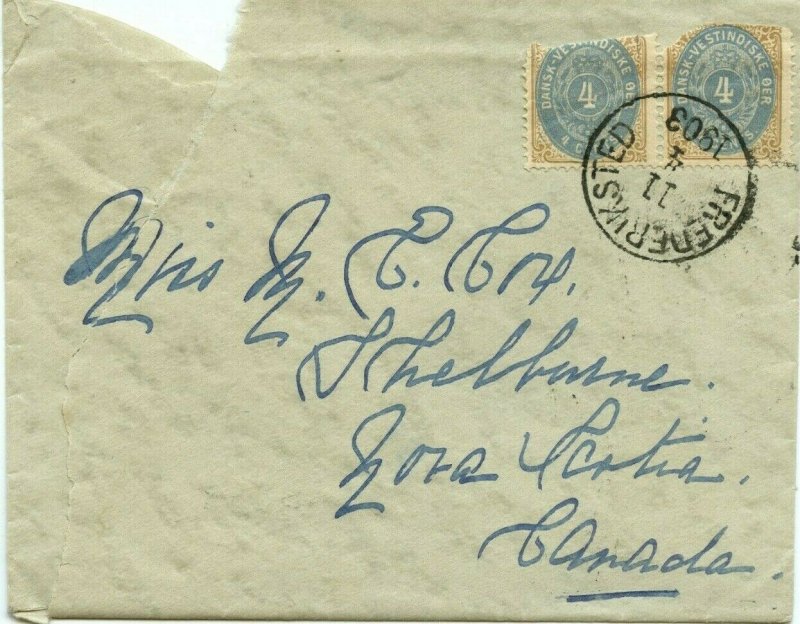 DANSK-VESTINDISKE ØER
4
4 C
DANSK-VESTINDISKE ØER
4
S
FREDERIKSTED
11
4
1903
Miss M. C. Cox,
Shelburne.
Nova Scotia.
Canada.